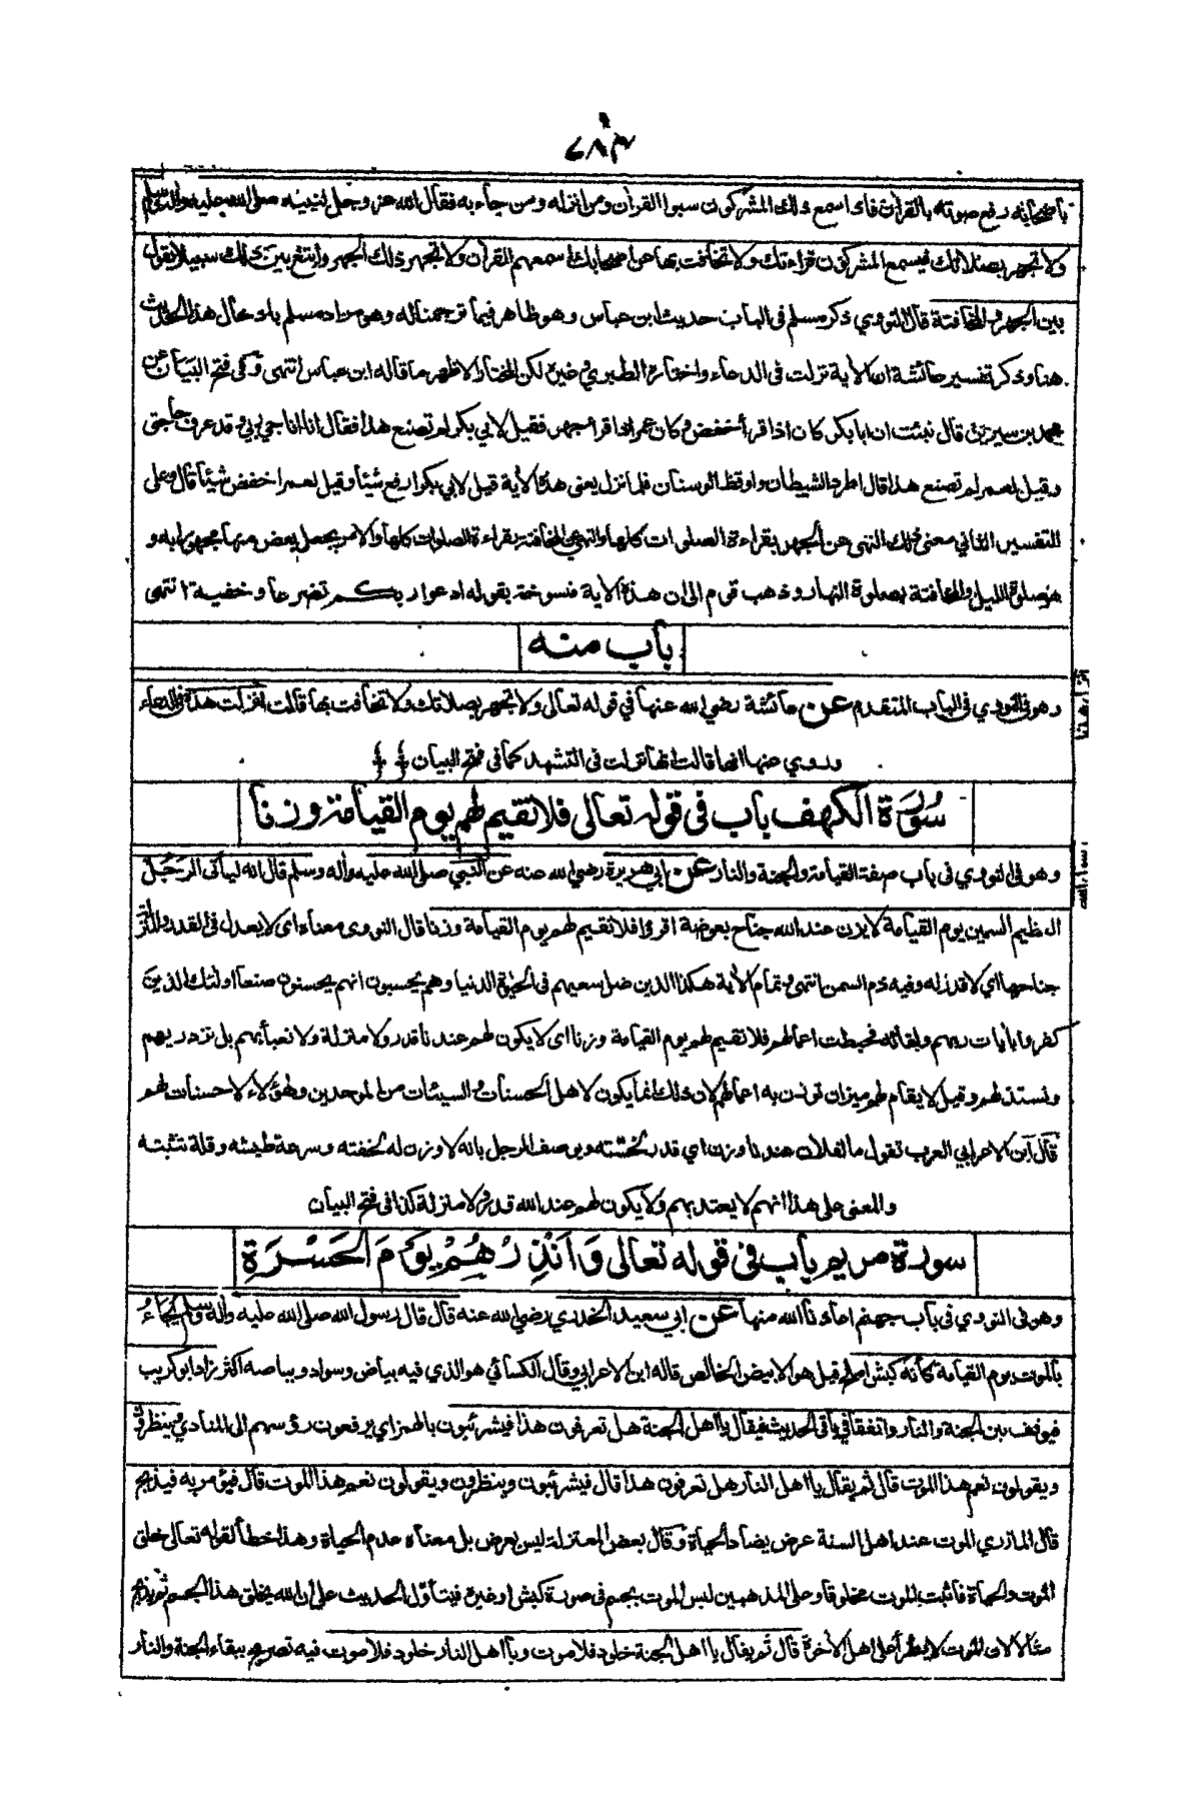 ٦٨٣
باصحابه رفع صوته بالقرآن فاذا سمع ذلك المشركون سبوا القرآن ومن انزله ومن جاء به فقال الله عز وجل لنبيه صلى الله عليه وآله وسلم
ولا تجهر بصلاتك فيسمع المشركون قراءتك ولا تخافت بها عن اصحابك اسمعهم القرآن ولا تجهر ذلك الجهر وابتغ بين ذلك سبيلا يقول
بين الجهر والمخافتة قال النووي ذكر مسلم في الباب حديث ابن عباس وهو ظاهر فيما ترجمنا له وهو مراد مسلم بادخال هذا الحديث
هنا وذكر تفسير عائشة ان الآية نزلت في الدعاء واختاره الطبري وغيره لكن المختار الاظهر ما قاله ابن عباس انتهى وفي فتح البيان عن
محمد بن سيرين قال نبئت ان ابا بكر كان اذا قرأ خفض وكان عمر اذا قرأ جهر فقيل لابي بكر لم تصنع هذا فقال انا اناجي ربي وقد عرف حاجتي
وقيل لعمر لم تصنع هذا قال اطرد الشيطان واوقظ الوسنان فلما نزل يعني هذه الآية قيل لابي بكر ارفع شيئا وقيل لعمر اخفض شيئا قال وعلى
التفسير الثاني معنى ذلك النهي عن الجهر بقراءة الصلوات كلها والنهي عن المخافتة بقراءة الصلوات كلها والامر بجعل بعض منها مجهورا به و
هو صلوة الليل والمخافتة بصلوة النهار وذهب قوم الى ان هذه الآية منسوخة بقوله ادعوا ربكم تضرعا وخفية انتهى
باب منه
وهو في النووي في الباب المتقدم عن عائشة رضي الله عنها في قوله تعالى ولا تجهر بصلاتك ولا تخافت بها قالت انزلت هذه في الدعاء
وروي عنها انها قالت انها نزلت في التشهد كما في فتح البيان
سورة الكهف باب في قوله تعالى فلا نقيم لهم يوم القيامة وزنا
وهو في النووي في باب صفة القيامة والجنة والنار عن ابي هريرة رضي الله عنه عن النبي صلى الله عليه وآله وسلم قال انه ليأتي الرجل
العظيم السمين يوم القيامة لا يزن عند الله جناح بعوضة اقرؤا فلا نقيم لهم يوم القيامة وزنا قال النووي معناه اى لا يعدل في القدر والمنزلة
جناحها اي لا قدر له وفيه ذم السمن انتهى وتمام الآية هكذا الذين ضل سعيهم في الحيوة الدنيا وهم يحسبون انهم يحسنون صنعا اولئك الذين
كفروا بآيات ربهم ولقائه فحبطت اعمالهم فلا نقيم لهم يوم القيامة وزنا اى لا يكون لهم عندنا قدر ولا منزلة ولا نعبأ بهم بل نزدريهم
ونستذلهم وقيل لا يقام لهم ميزان توزن به اعمالهم لان ذلك انما يكون لاهل الحسنات والسيئات من الموحدين وهؤلاء لا حسنات لهم
قال ابن الاعرابي العرب تقول ما لفلان عندنا وزن اي قدر لخسته ويوصف الرجل بانه لا وزن له لخفته وسرعة طيشه وقلة تثبته
والمعنى على هذا انهم لا يعتد بهم ولا يكون لهم عند الله قدر ولا منزلة كذا في فتح البيان
سورة مريم باب في قوله تعالى وَاَنْذِرْهُمْ يَوْمَ الْحَسْرَةِ
وهو في النووي في باب جهنم اعاذنا الله منها عن ابي سعيد الخدري رضي الله عنه قال قال رسول الله صلى الله عليه وآله وسلم يجاء
بالموت يوم القيامة كأنه كبش املح قيل هو الابيض الخالص قاله ابن الاعرابي وقال الكسائي هو الذي فيه بياض وسواد وبياضه اكثر زاد ابو كريب
فيوقف بين الجنة والنار واتفقا في باقي الحديث فيقال يا اهل الجنة هل تعرفون هذا فيشرئبون بالهمز اي يرفعون رؤسهم الى المنادي وينظرون
ويقولون نعم هذا الموت قال ثم يقال يا اهل النار هل تعرفون هذا قال فيشرئبون وينظرون ويقولون نعم هذا الموت قال فيؤمر به فيذبح
قال المازري الموت عند اهل السنة عرض يضاد الحياة وقال بعض المعتزلة ليس بعرض بل معناه عدم الحياة وهذا خطأ لقوله تعالى خلق
الموت والحياة فاثبت الموت مخلوقا وعلى المذهبين ليس الموت بجسم في صورة كبش او غيره فيتأول الحديث على ان الله يخلق هذا الجسم ثم يذبح
مثالا لان الموت لا يطرأ على اهل الآخرة قال ثم يقال يا اهل الجنة خلود فلا موت ويا اهل النار خلود فلا موت فيه تصريح ببقاء الجنة والنار